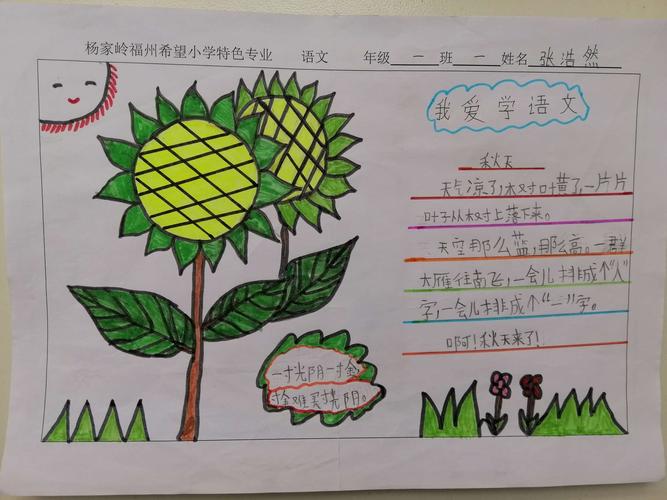 杨家岭福州希望小学特色专业 语文 年级 一 班 一 姓名 张浩然
我爱学语文
秋天
天气凉了,树叶黄了,一片片
叶子从树上落下来。
天空那么蓝,那么高。一群
大雁往南飞,一会儿排成个“人”
字,一会儿排成个“一”字。
啊!秋天来了!
一寸光阴一寸金
寸金难买寸光阴。